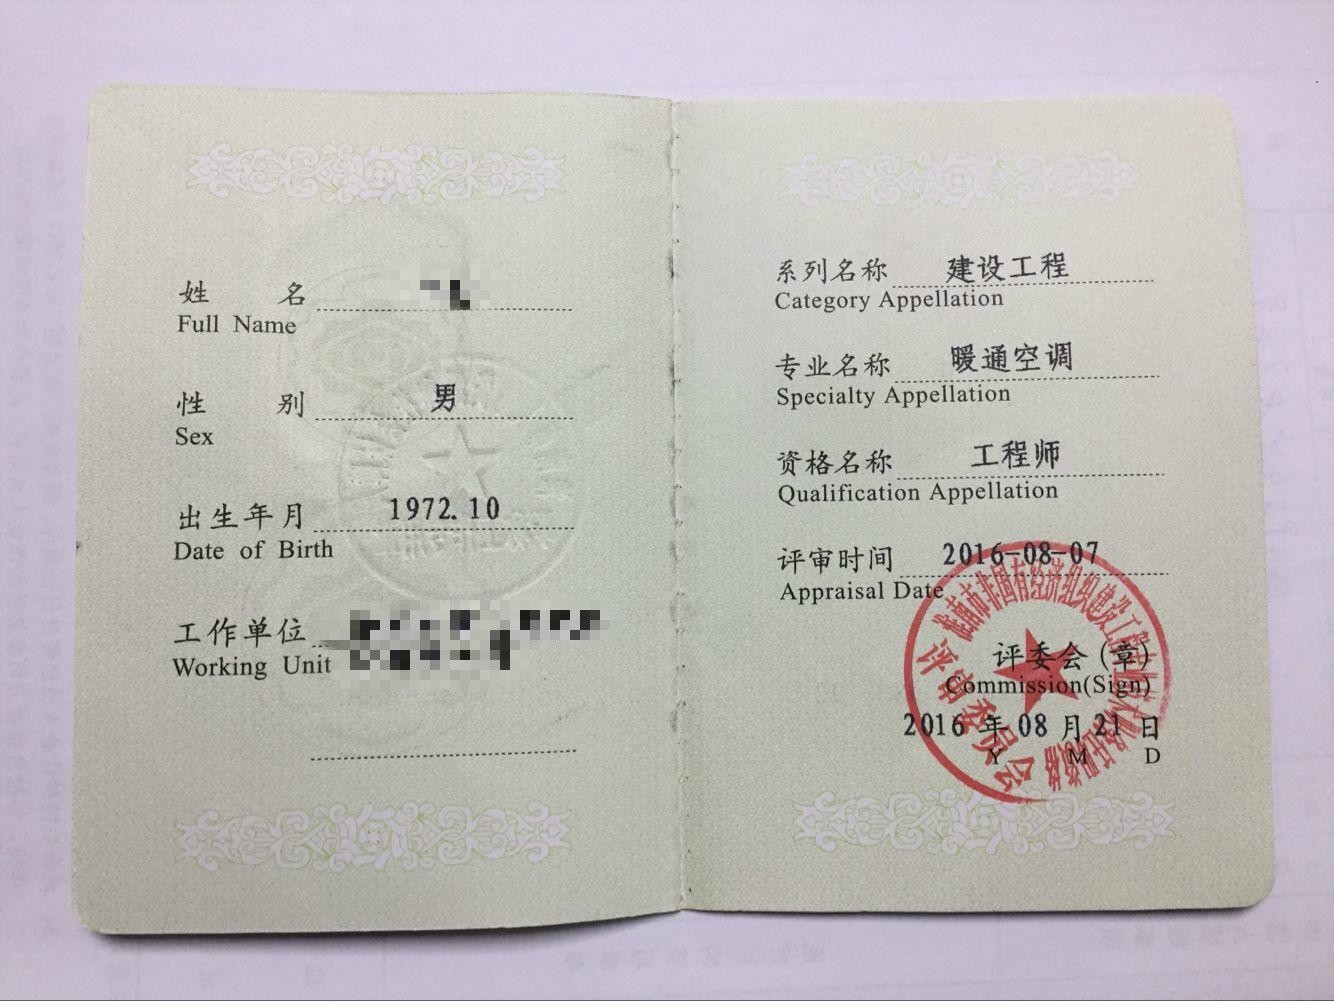 姓 名
Full Name
性 别 男
Sex
出生年月 1972.10
Date of Birth
工作单位
Working Unit
系列名称 建设工程
Category Appellation
专业名称 暖通空调
Specialty Appellation
资格名称 工程师
Qualification Appellation
评审时间 2016-08-07
Appraisal Date
淮南市非国有经济组织建设工程专业技术职务任职资格
评审委员会
评委会(章)
Commission(Sign)
2016 年 08 月 21 日
Y M D